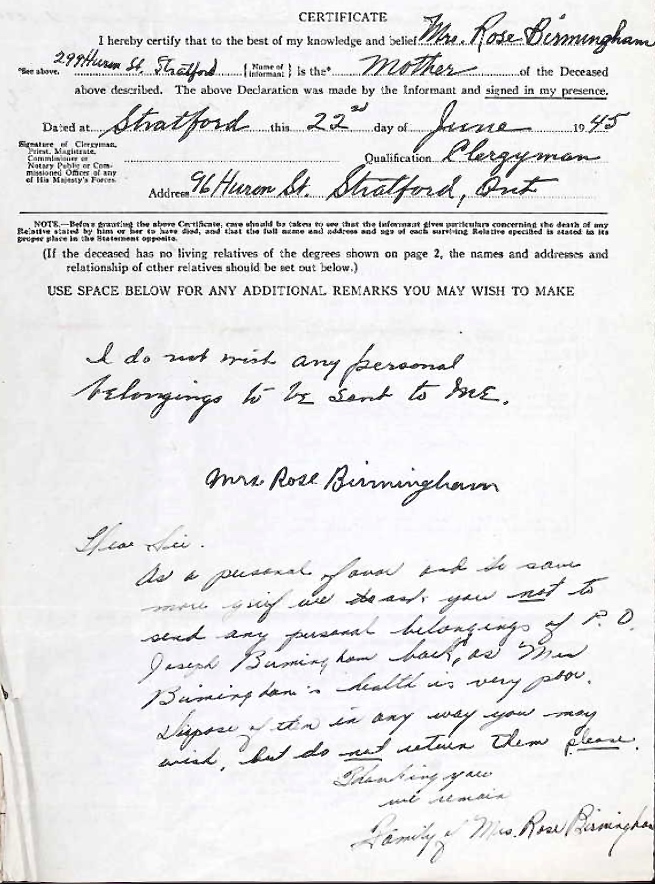 CERTIFICATE
I hereby certify that to the best of my knowledge and belief Mrs. Rose Birmingham
*See above. 299 Huron St. Stratford { Name of Informant } is the* Mother of the Deceased
above described. The above Declaration was made by the Informant and signed in my presence.
Dated at Stratford this 22nd day of June 1945
Signature of Clergyman,
Priest, Magistrate,
Commissioner or
Notary Public or Com-
missioned Officer of any
of His Majesty's Forces.
Qualification Clergyman
Address 96 Huron St. Stratford, Ont
NOTE.—Before granting the above Certificate, care should be taken to see that the informant gives particulars concerning the death of any
Relative stated by him or her to have died, and that the full name and address and age of each surviving Relative specified is stated in its
proper place in the Statement opposite.
(If the deceased has no living relatives of the degrees shown on page 2, the names and addresses and
relationship of other relatives should be set out below.)
USE SPACE BELOW FOR ANY ADDITIONAL REMARKS YOU MAY WISH TO MAKE
I do not wish any personal
belongings to be sent to ME.
Mrs Rose Birmingham
Dear Sir.
As a personal favor and to save
more grief we ask you not to
send any personal belongings of P. O.
Joseph Birmingham back, as Mrs
Birmingham's health is very poor.
Dispose of them in any way you may
wish, but do not return them please.
Thanking you
we remain
Family of Mrs. Rose Birmingham